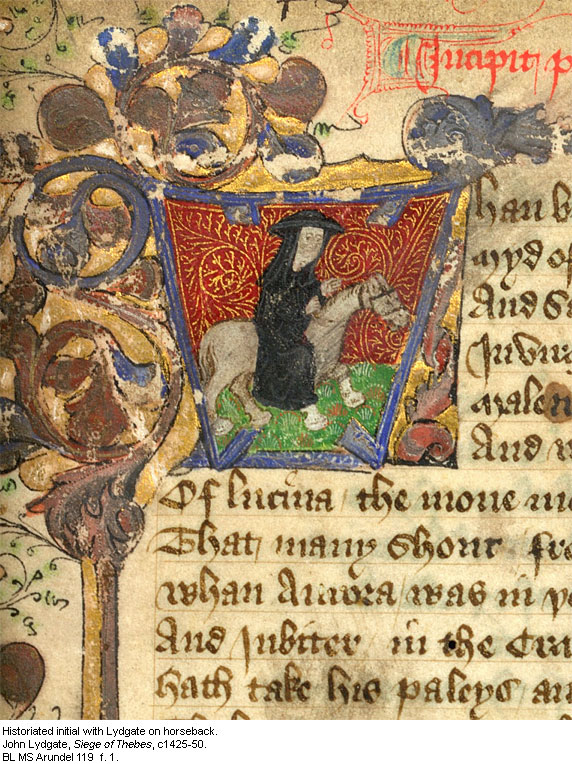 Incipit p
han b
myd of
And Sa
In virg
malen
And w
Of lucina / the mone mo
That many shour fro
whan Aurora was in
And Jubiter in the Cra
hath take his paleys an
Historiated initial with Lydgate on horseback.
John Lydgate, Siege of Thebes, c1425-50.
BL MS Arundel 119 f. 1.